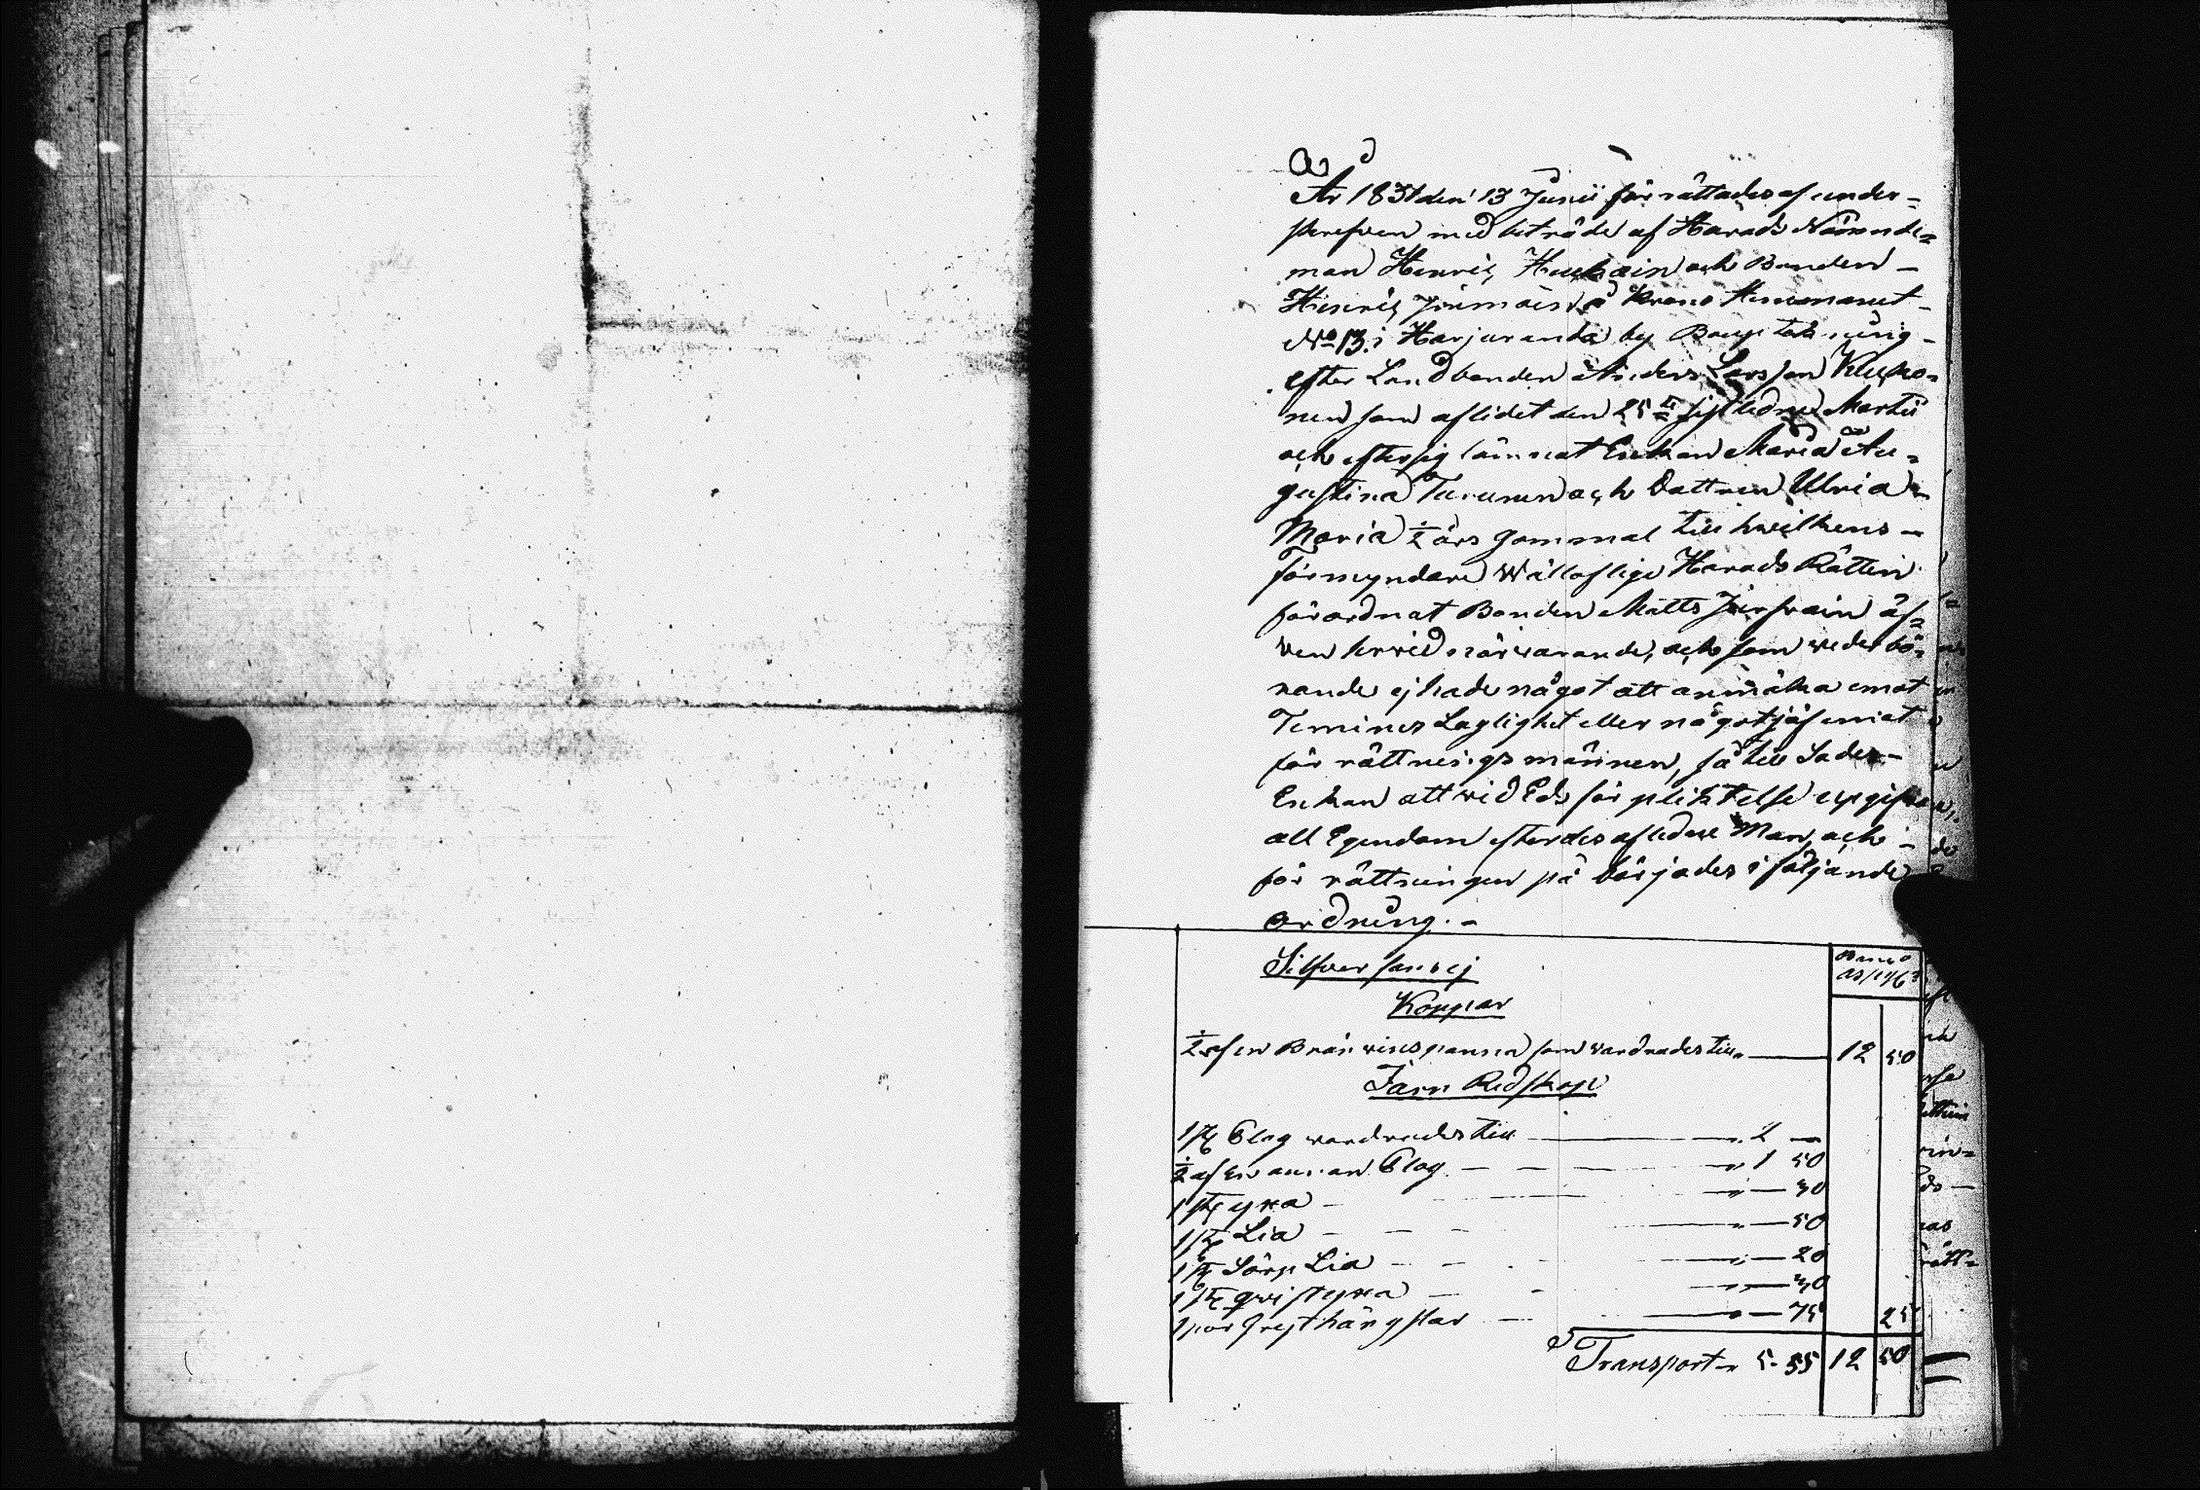 År 1831 den 13 Junii förrättades af under-
skrefven med biträde af Harads Nämnde-
man Henric Huuhain och Bonden
Henric på Krono Hemmanet
No 13 i Harjuranda by Bouptekning
efter Landbonden Anders Larsson Kupo-
nen som aflidet den 25 sistledne Martii
och efter sig lämnat Enkan Maria Au-
gustina Turunen och Dottren Ulrica
Maria ½ års gammal till hwilkens
Förmyndare Wälloflige Harads Rätten
förordnat Bonden Matts äf-
wen hrvid närwarande, och som wederbö-
rande ej hade något att anmärka emot
Terminers Laglighet eller något jäf emot
förrättningsmännen, så tillsades
Enkan att wid Eds förplichtelse upgifwa
all Egendom efter des aflidne Man, och
förrättningen på börjades i följande
ordning.-
Silfver fans ej
Banco
Koppar
½ af en Bränwins panna som wardrades till 12 50
Järn Redskap
1 st Plog wardrades till 2 —
½ af en annan Plog 1 50
1 st yxa — 30
1 st Lia — 50
1 st Sörp Lia — 20
1 st qwistyxa — 30
1 par grejthängslar — 75 25
Transport 5. 55 12 50